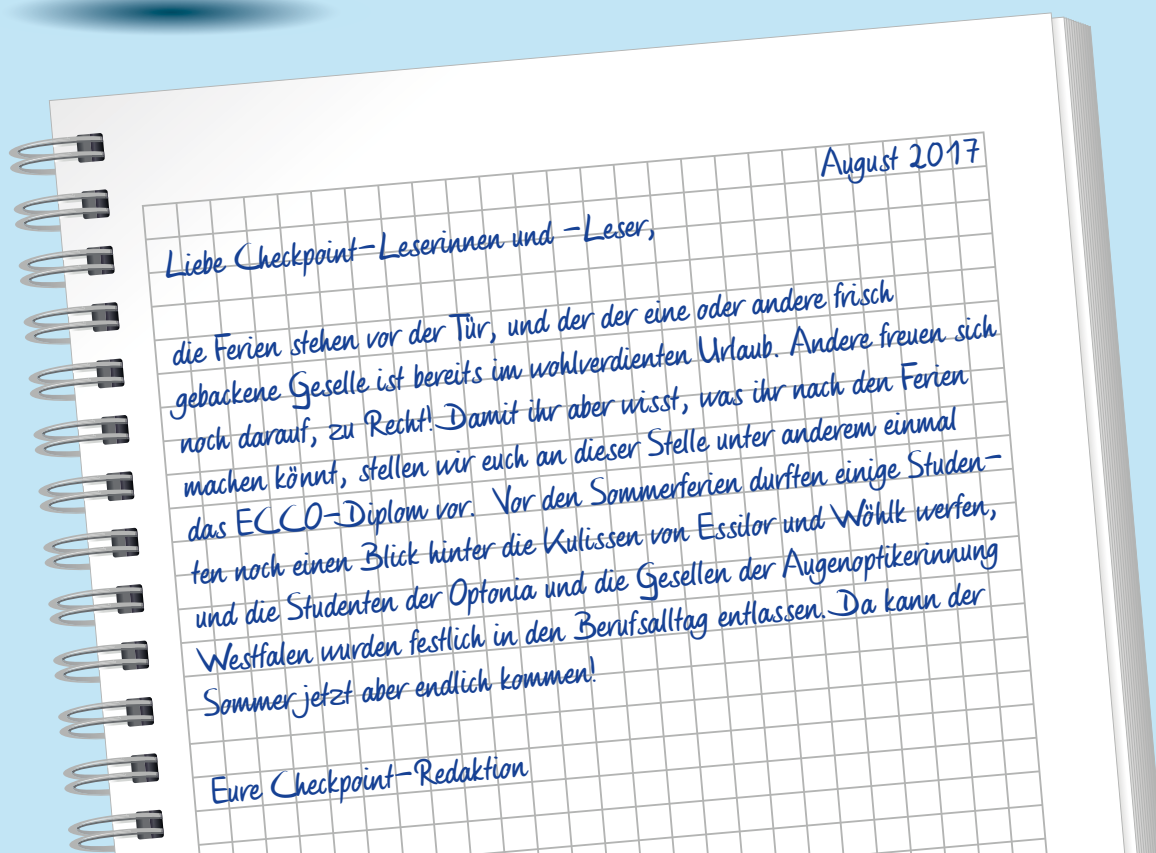 August 2017
Liebe Checkpoint-Leserinnen und -Leser,
die Ferien stehen vor der Tür, und der der eine oder andere frisch
gebackene Geselle ist bereits im wohlverdienten Urlaub. Andere freuen sich
noch darauf, zu Recht! Damit ihr aber wisst, was ihr nach den Ferien
machen könnt, stellen wir euch an dieser Stelle unter anderem einmal
das ECCO-Diplom vor. Vor den Sommerferien durften einige Studen-
ten noch einen Blick hinter die Kulissen von Essilor und Wöhlk werfen,
und die Studenten der Optonia und die Gesellen der Augenoptikerinnung
Westfalen wurden festlich in den Berufsalltag entlassen. Da kann der
Sommer jetzt aber endlich kommen!
Eure Checkpoint-Redaktion